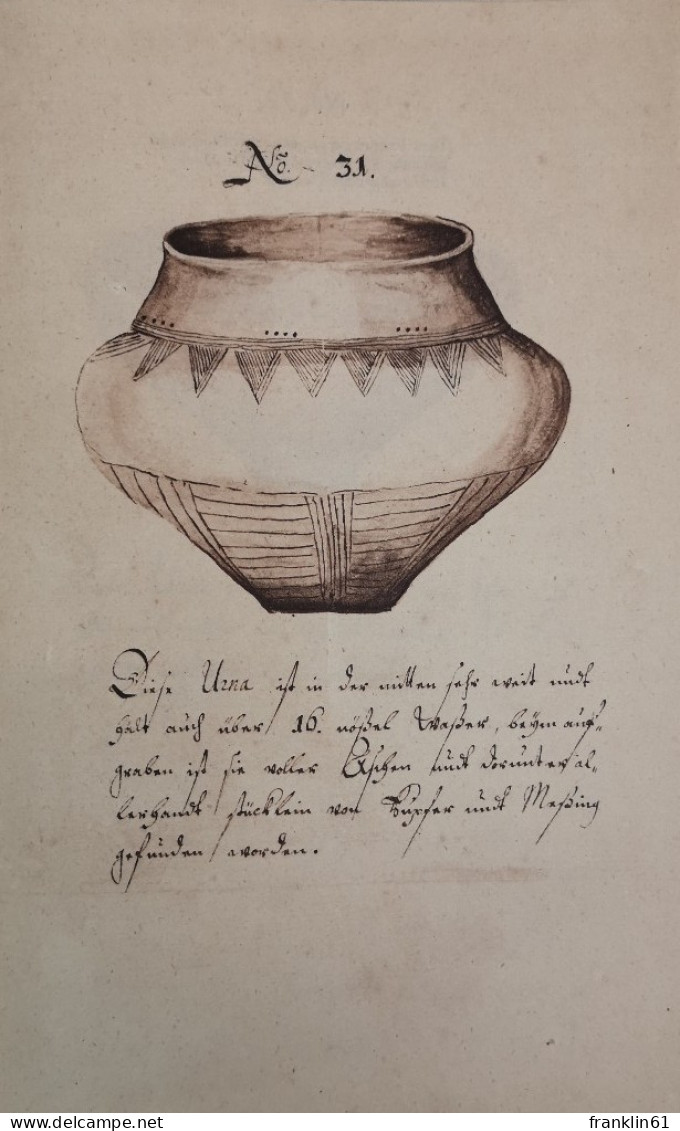 No. 31.
Diese Urna ist in der mitten sehr weit undt
hält auch über 16. nößel Waßer, beym auf-
graben ist sie voller Aschen undt darunter al-
lerhandt stücklein von Kupfer undt Meßing
gefunden worden.
www.delcampe.net
franklin61